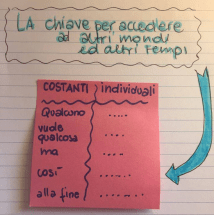 LA chiave per accedere
ad altri mondi
ed altri tempi
COSTANTI individuali
Qualcuno .....
vuole
qualcosa ....
ma ....
così .....
alla fine .......